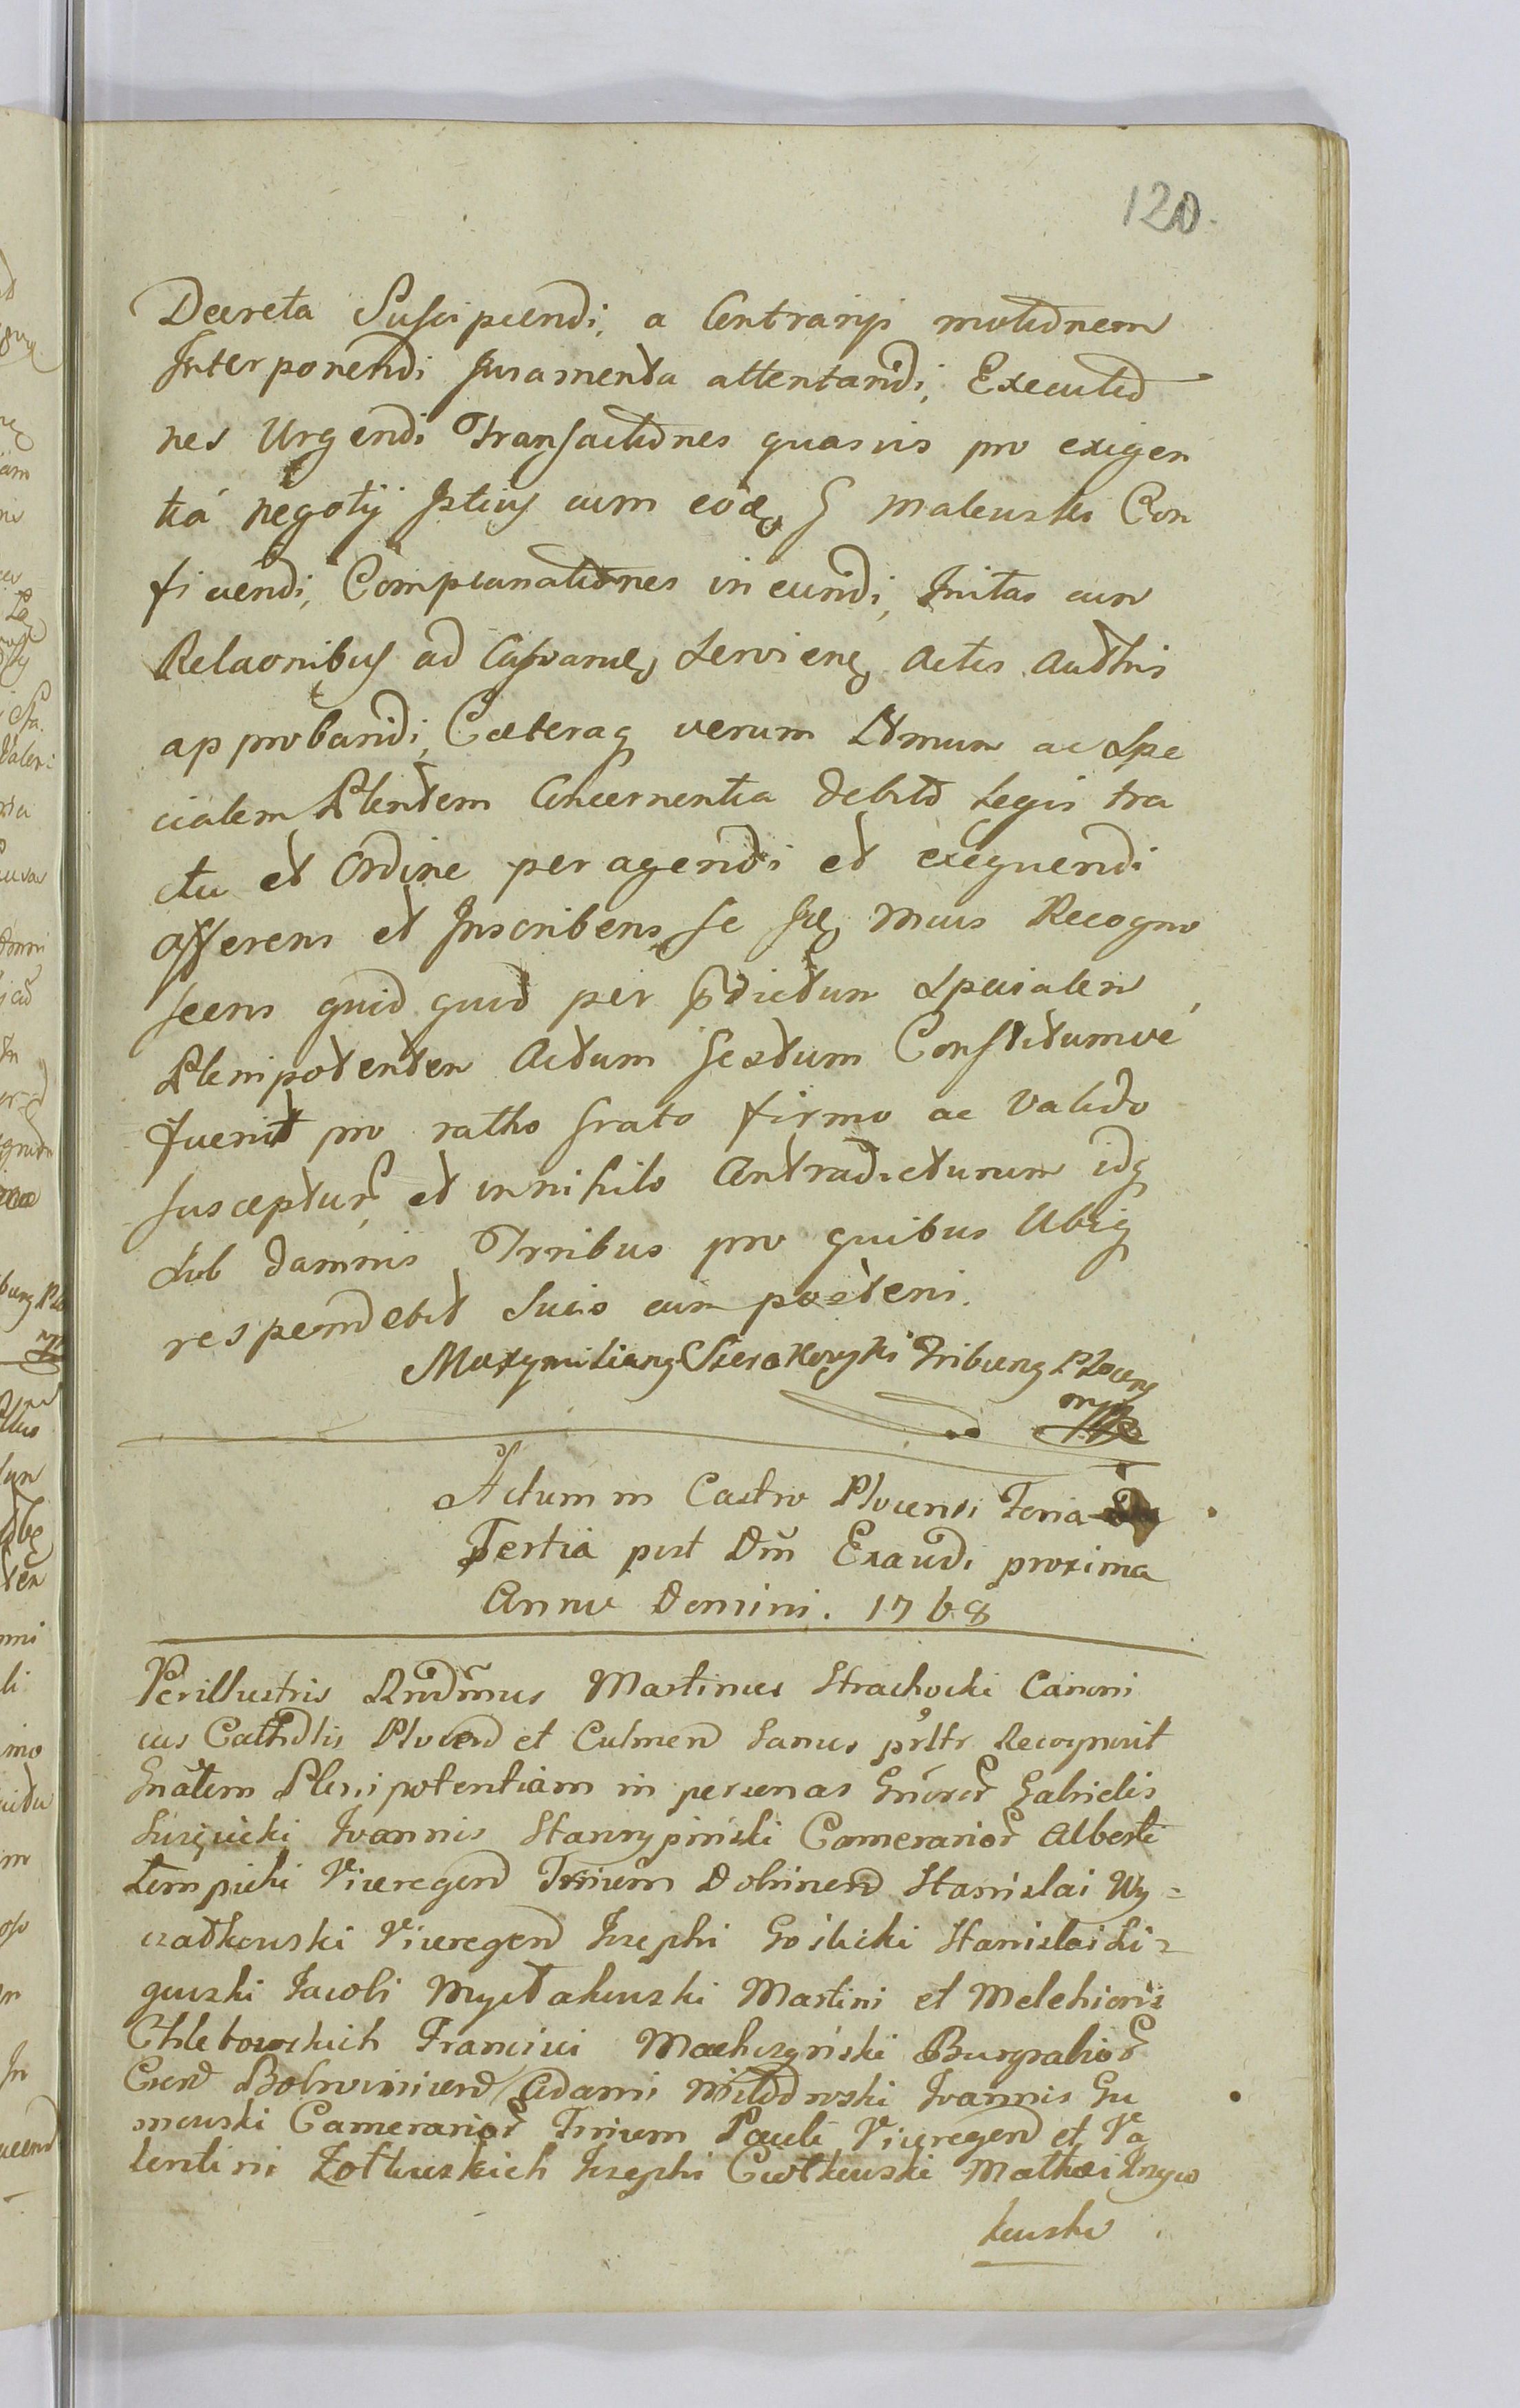 120.
Decreta Suscipiendi, a Contrarijs motionem
Interponendi Juramenta attentandi, Executio
nes Urgendi Transactiones quasvis pro exigen
tiá negotij Istius cum eodem G Malewski Con
ficiendi, Complanationes in eundi, Initas cum
Relaonibus ad Servien Actis Authen
approbandi, Cæteraq verum Ltmum ac Spe
cialem Plentem Concernentia debito Legis tra
ctu et Ordine peragendi et exequendi
offerens et Inscribens se Meus Recogno
scens quid quid per prædictum Specialem
Plenipotentem Actum Gestum Constitumve
fuerit pro ratho Grato firmo ac Valido
suscepturum et in nihilo Contradicturum idq
sub damnis Trribus pro quibus Ubiq
respondebit Suis cum posteris.
Maxymilianus Sierakowski Tribunus Plocens
mp
Actum in Castro Plocensi Feria
Tertia post Dm Exaudi proxima
Anno Domini. 1768
Perillustris Rndmus Martinus Strachocki Canoni
cus Cathdlis Plocen et Culmen Sanus prltr Recognovit
Gnalem Plenipotentiam in personas Gnoror Gabrielis
Joannis Skarzypinski Camerarior Alberti
Lempicki Viceregen Trrium Dobrinen Stanislai Wy=
czatkowski Viceregen Josephi Goslicki Stanislai Li=
gowski Jacobi Mystakowski Martini et Melchioris
Chlebowskich Francisci Machczyński Burgrabior
Cren Bobrovinicen Adami Milodrowski Joannis Gu
mowski Camerarior Trrium Pauli Viceregen et Va
lentini Zołtowskich Josephi Ciołkowski Mathæi Krzyw
kowski